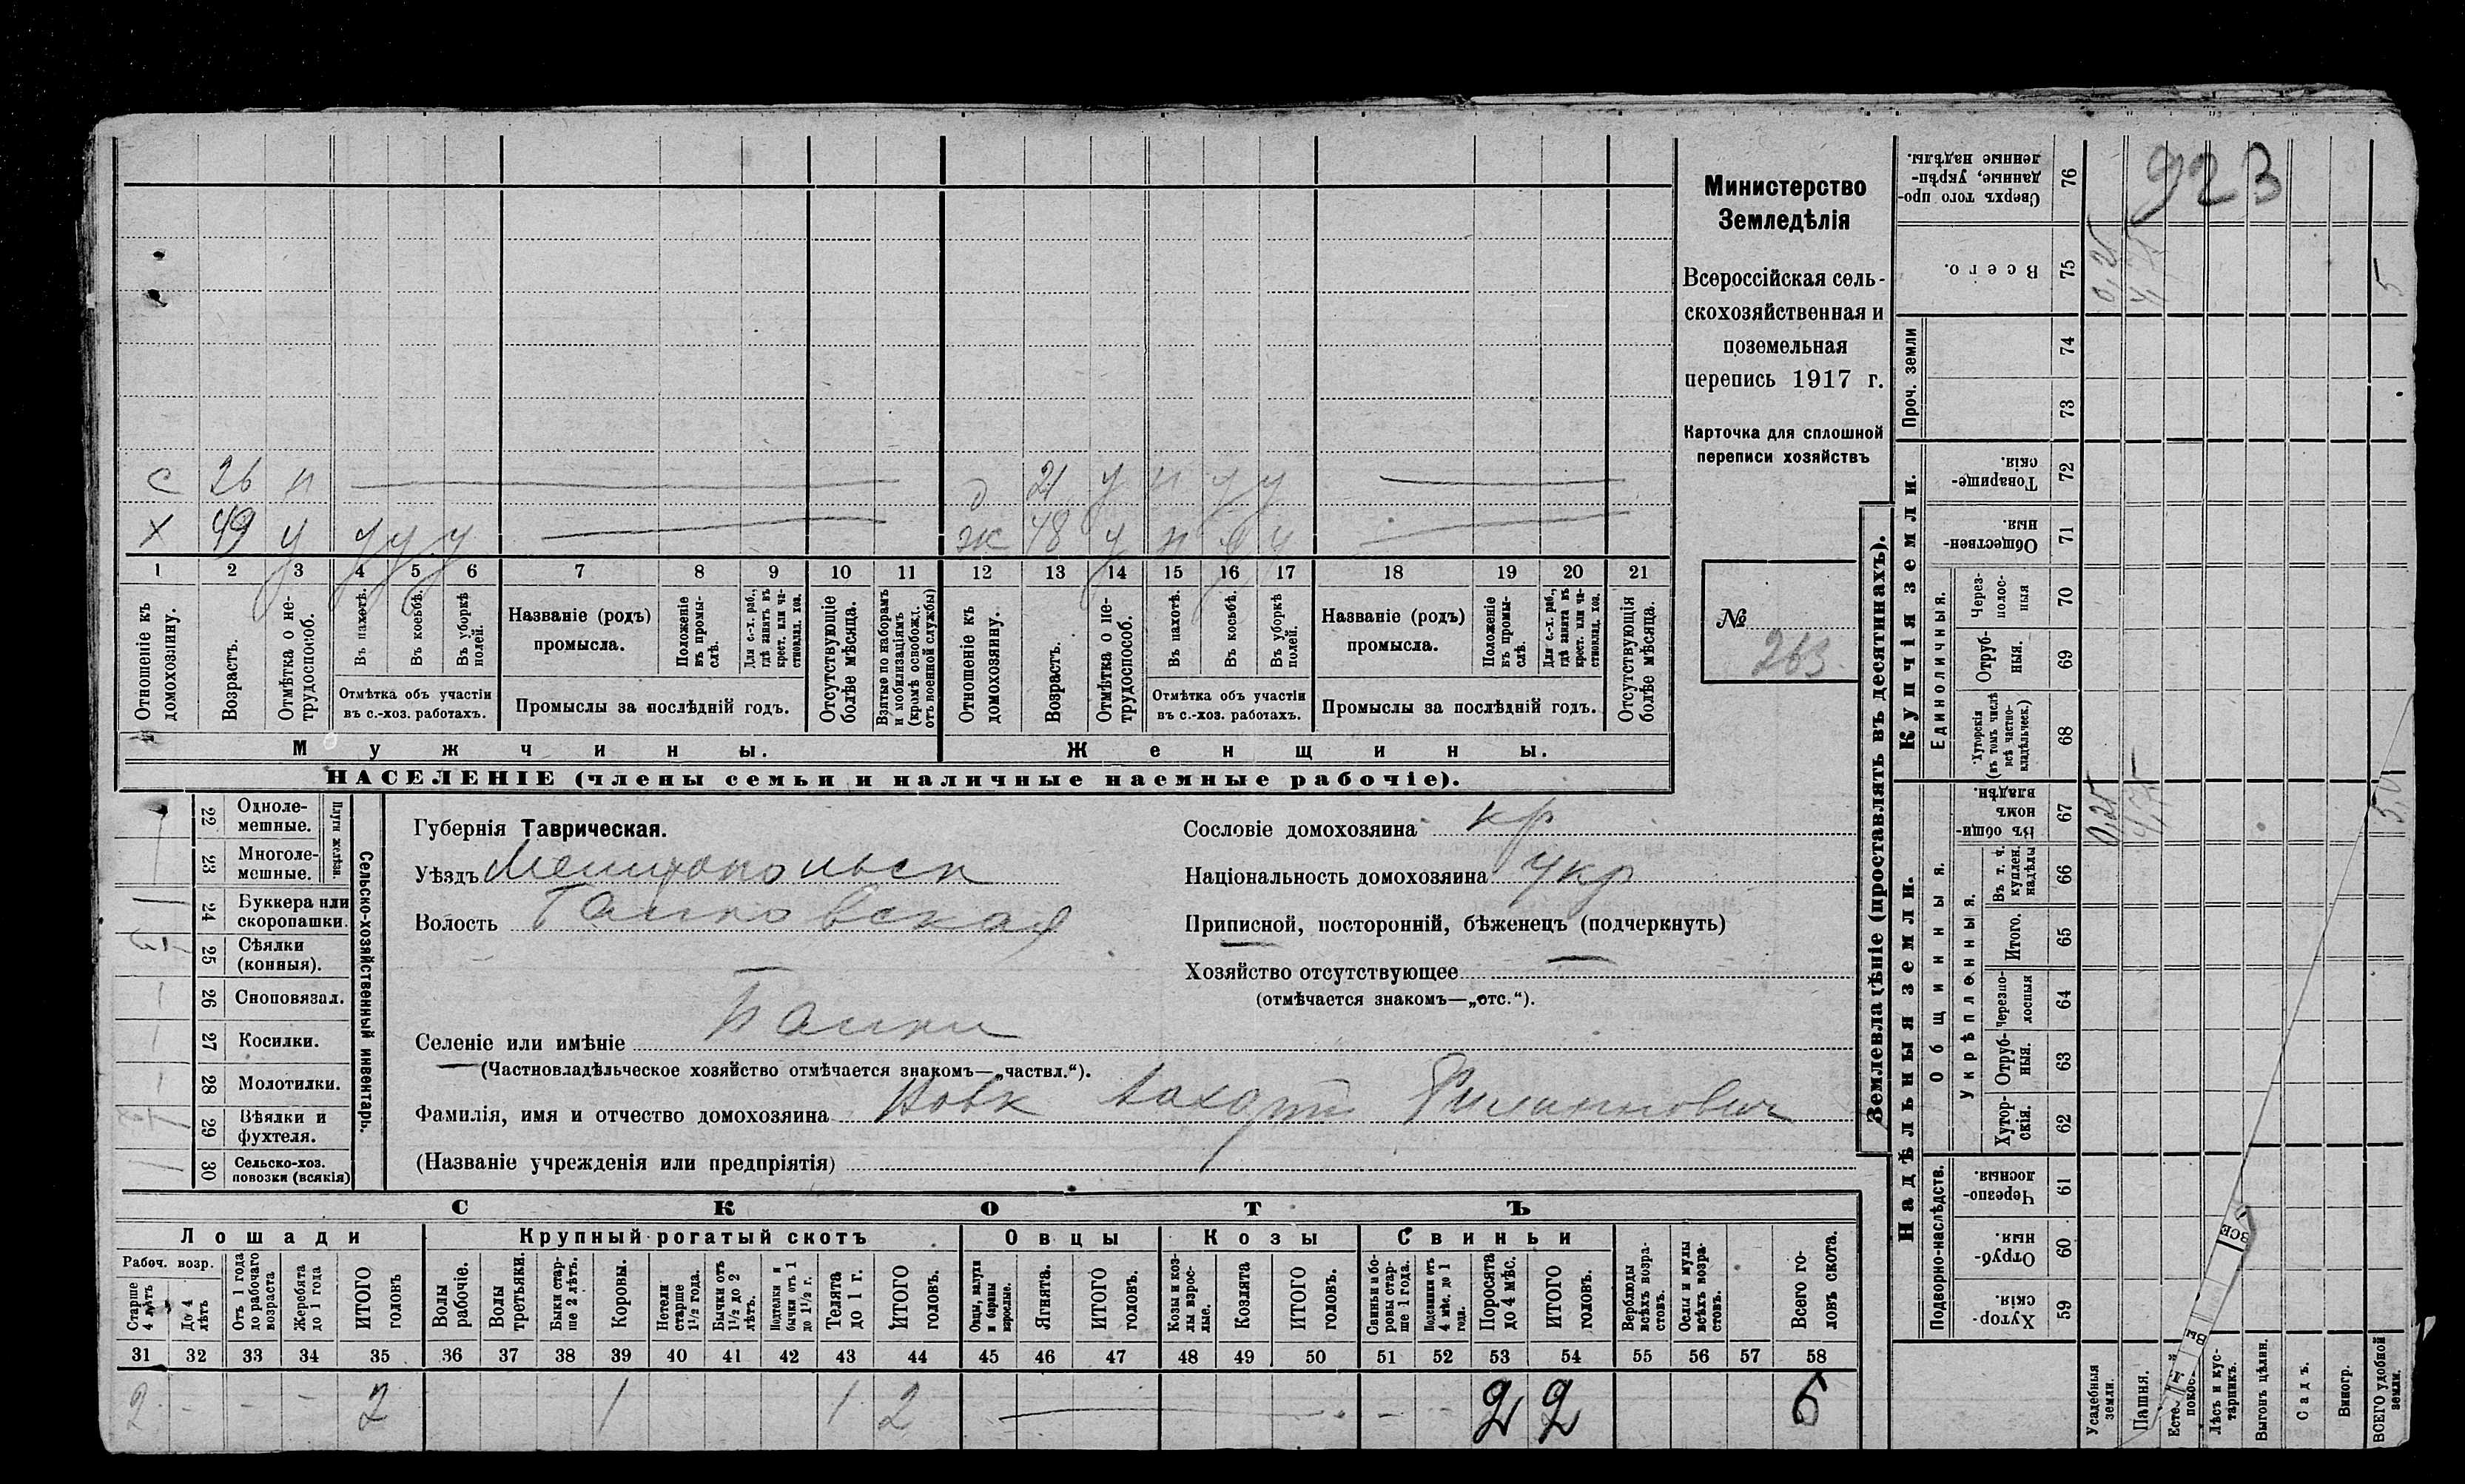 Министерство
Земледѣлія
Всероссійская сель-
скохозяйственная и
поземельная
перепись 1917 г.
Карточка для сплошной
переписи хозяйствъ
№
263
923
с 26 н
д 21 у н у у
х 49 у у у у
ж 48 у н у у
1 2 3 4 5 6 7 8 9 10 11 12 13 14 15 16 17 18 19 20 21
Отношеніе къ домохозяину.
Возрастъ.
Отмѣтка о не-трудоспособ.
Въ пахотѣ.
Въ косьбѣ.
Въ уборкѣ полей.
Отмѣтка объ участіи
въ с.-хоз. работахъ.
Названіе (родъ)
промысла.
Положеніе въ промы-слѣ.
Для с.-х. раб., гдѣ занятъ въ крест. или ча-стновлад. хоз.
Промыслы за послѣдній годъ.
Отсутствующіе болѣе мѣсяца.
Взятые по наборамъ и мобилизаціямъ (кромѣ освобожд. отъ военной службы)
Отношеніе къ домохозяину.
Возрастъ.
Отмѣтка о не-трудоспособ.
Въ пахотѣ.
Въ косьбѣ.
Въ уборкѣ полей.
Отмѣтка объ участіи
въ с.-хоз. работахъ.
Названіе (родъ)
промысла.
Положеніе въ промы-слѣ.
Для с.-х. раб., гдѣ занята въ крест. или ча-стновлад. хоз.
Промыслы за послѣдній годъ.
Отсутствующія болѣе мѣсяца.
Мужчины.
Женщины.
НАСЕЛЕНІЕ (члены семьи и наличные наемные рабочіе).
Сельско-хозяйственный инвентарь.
Плуги желѣзн.
22 Одноле-мешные.
23 Многоле-мешные.
24 Буккера или скоропашки.
25 Сѣялки (конныя).
26 Сноповязал.
27 Косилки.
28 Молотилки.
29 Вѣялки и фухтеля.
30 Сельско-хоз. повозки (всякія)
Губернія Таврическая.
Уѣздъ Мелитопольск
Волость
Селеніе или имѣніе
(Частновладѣльческое хозяйство отмѣчается знакомъ—„частвл.“).
Фамилія, имя и отчество домохозяина Новк Филиппович
(Названіе учрежденія или предпріятія)
Сословіе домохозяина кр
Національность домохозяина укр
Приписной, посторонній, бѣженецъ (подчеркнуть)
Хозяйство отсутствующее —
(отмѣчается знакомъ—„отс.“).
СКОТЪ
Лошади
Крупный рогатый скотъ
Овцы
Козы
Свиньи
Рабоч. возр.
Старше 4 лѣтъ
До 4 лѣтъ
Отъ 1 года до рабочаго возраста
Жеребята до 1 года
ИТОГО головъ
Волы рабочіе.
Волы третьяки.
Быки стар-ше 2 лѣтъ.
Коровы.
Нетели старше 1½ года.
Бычки отъ 1½ до 2 лѣтъ.
Подтелки и бычки отъ 1 до 1½ г.
Телята до 1 г.
ИТОГО головъ.
Овцы, валухи и бараны взрослые.
Ягнята.
ИТОГО головъ.
Козы и коз-лы взрос-лые.
Козлята
ИТОГО головъ.
Свиньи и бо-ровы стар-ше 1 года.
Подсвинки отъ 4 мѣс. до 1 года.
Поросята до 4 мѣс.
ИТОГО головъ.
Верблюды всѣхъ возра-стовъ.
Ослы и мулы всѣхъ возра-стовъ.
Всего го-ловъ скота.
31 32 33 34 35 36 37 38 39 40 41 42 43 44 45 46 47 48 49 50 51 52 53 54 55 56 57 58
2 - - - 2 1 1 2 — - - 2 2 6
Землевладѣніе (проставлять въ десятинахъ).
Купчія земли.
Надѣльныя земли.
Сверхъ того про-данные, укрѣп-ленные надѣлы. 76
Всего. 75
0,25
5
Проч. земли
74
73
Товарище-скія. 72
Обществен-ныя. 71
Единоличныя.
Через-полос-ныя 70
Отруб-ныя. 69
Хуторскія (въ томъ числѣ всѣ частно-владѣльческ.) 68
Общинныя.
Въ общин-номъ владѣн. 67
0,25
5,0
Укрѣпленныя.
Въ т. ч. куплен. надѣлы 66
Итого. 65
Черезпо-лосныя 64
Отруб-ныя. 63
Хутор-скія. 62
Подворно-наслѣдств.
Черезпо-лосныя. 61
Отруб-ныя. 60
Хутор-скія. 59
Усадебныя земли.
Пашня.
Лѣсъ и кус-тарникъ.
Выгонъ цѣлин.
Садъ.
Виногр.
ВСЕГО удобной земли.